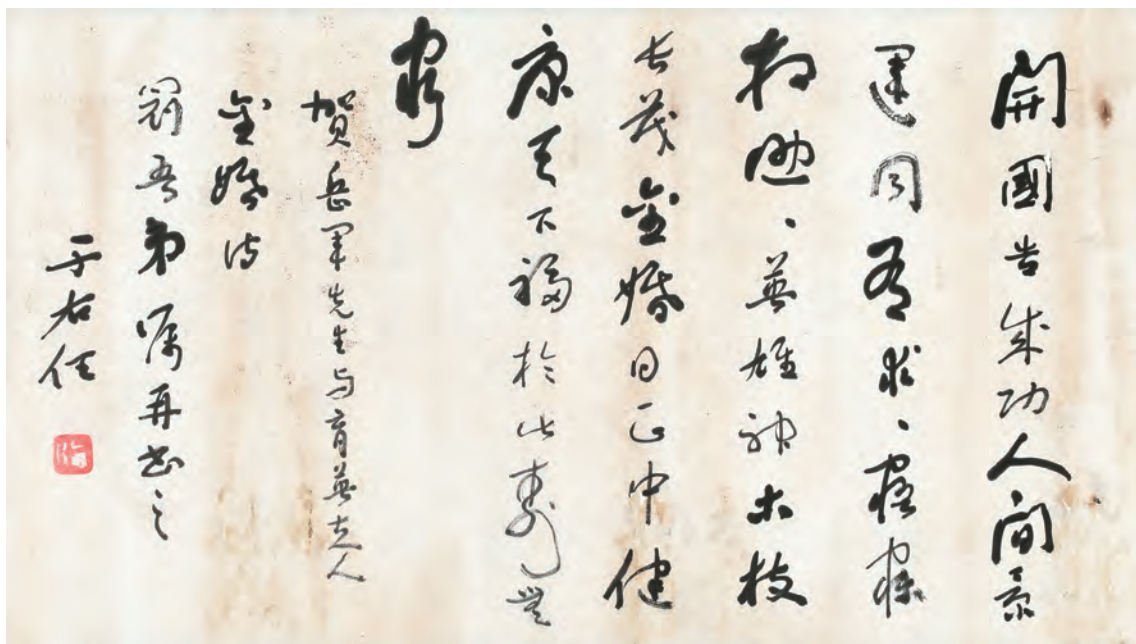 開國告成功人間景
運同有求、寤寐
相勉、英雄神木枝
長茂金婚日正中健
康天下福於此壽無
窮
賀岳軍先生与育英夫人
金婚詩
剛吾弟囑再書之
于右任